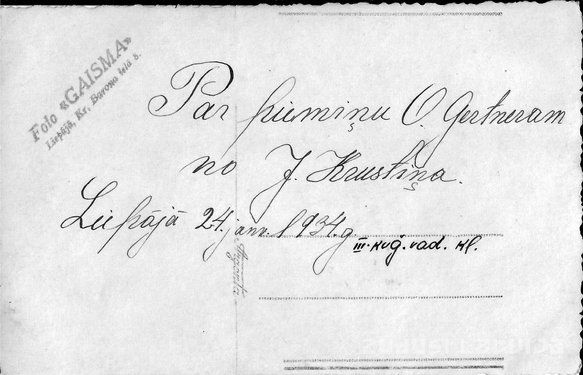 Foto «GAISMA»
Liepājā, Kr. Barona ielā 5.
Par piemiņu O. Gertneram
no J. Krustiņa.
Liepājā 24. janv. 1934. g.
III-kuģ. vad. kl.